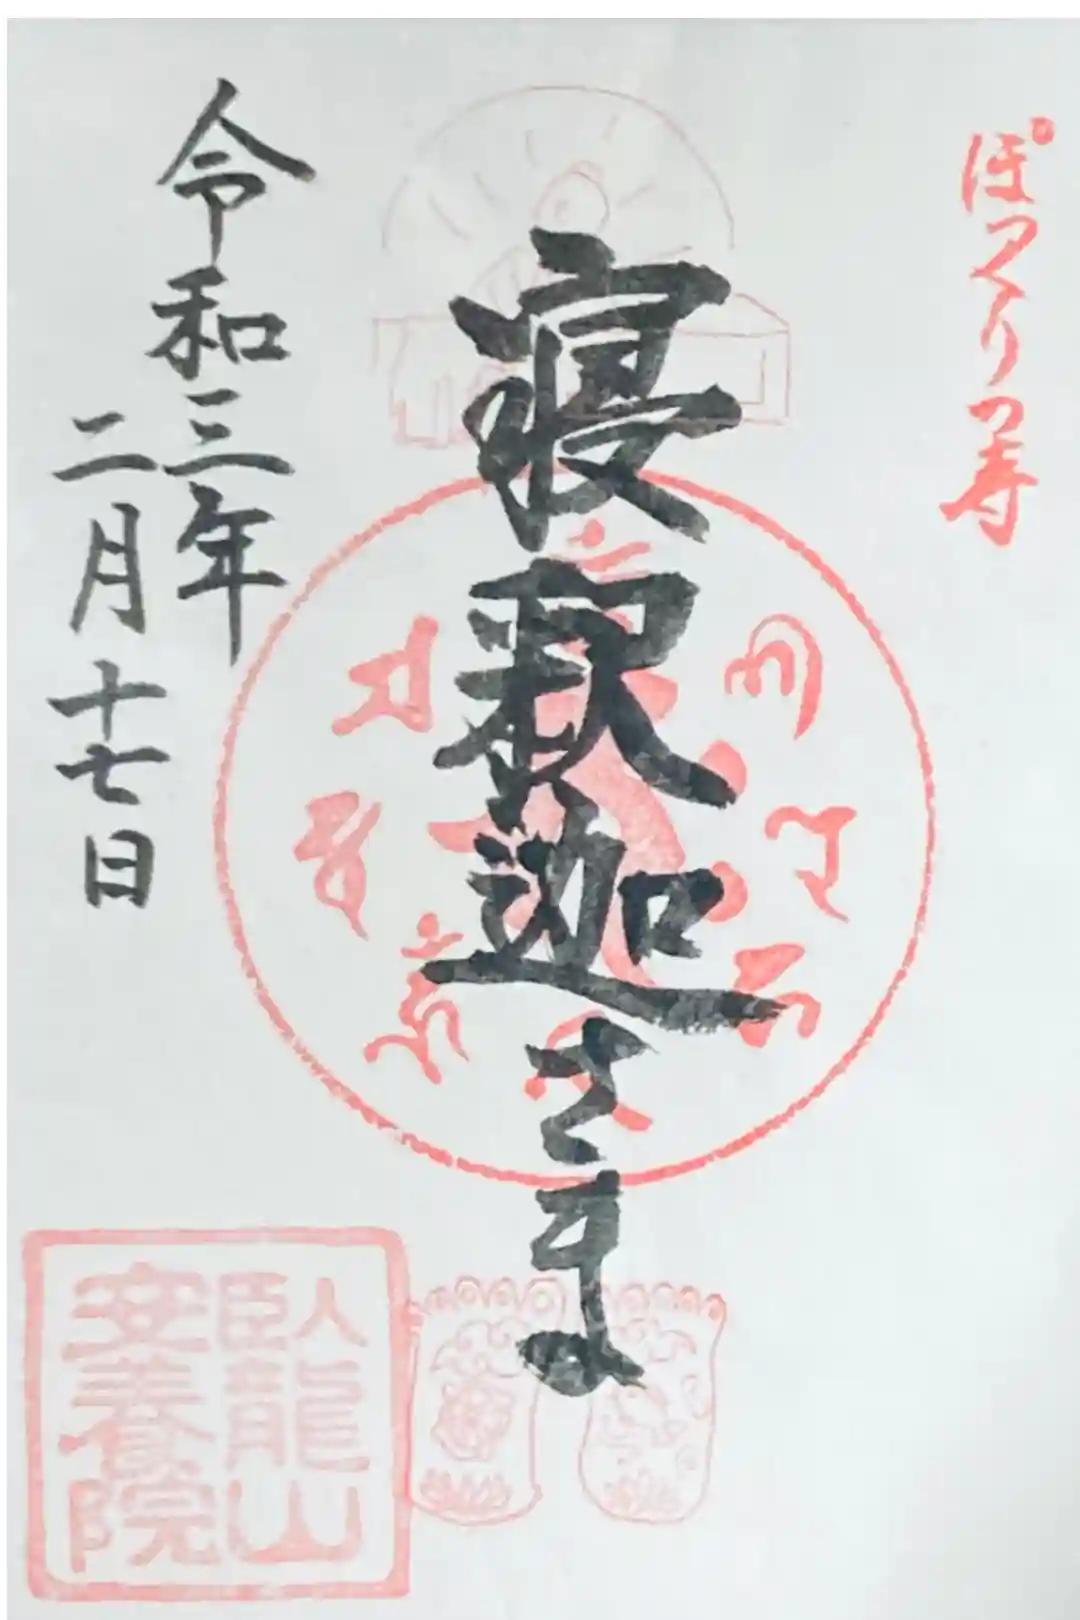 ぽっくり寿
寝釈迦さま
令和三年
二月十七日
臥龍山
安養院